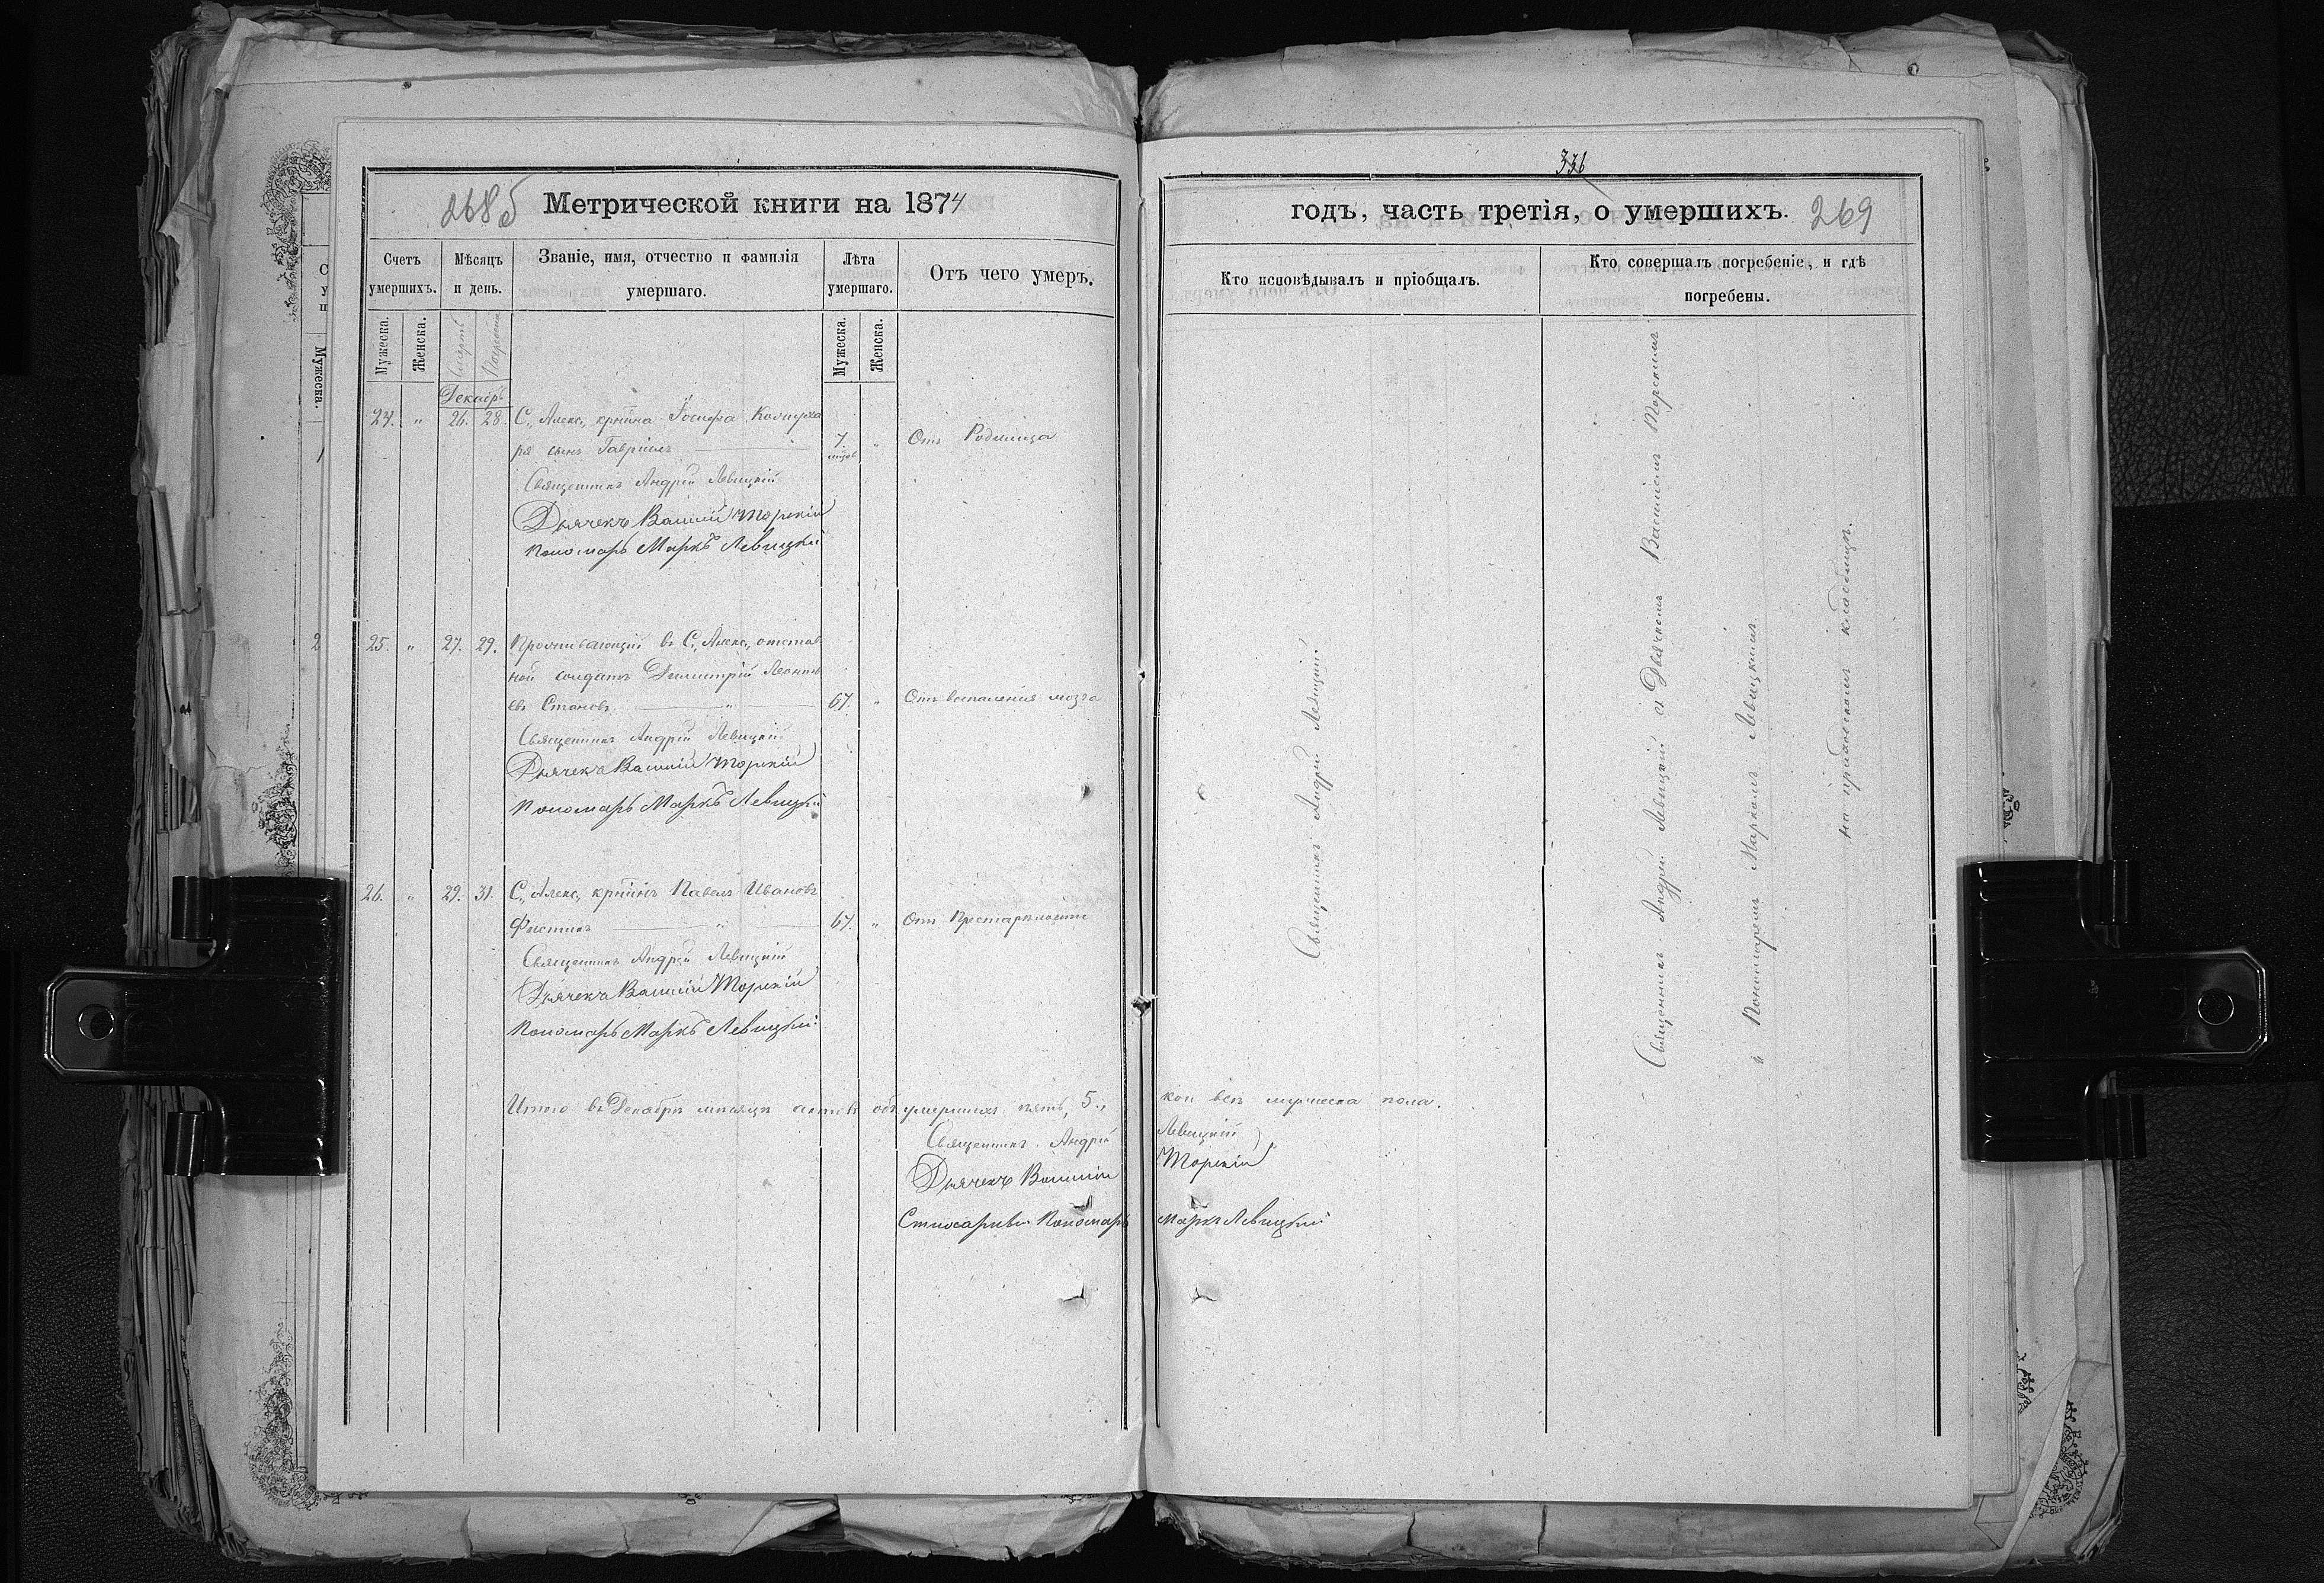 336
268б Метрической книги на 1874
годъ, часть третія, о умершихъ. 269
Счетъ умершихъ.
Мѣсяцъ и день.
Званіе, имя, отчество и фамилія умершаго.
Лѣта умершаго.
Отъ чего умеръ.
Кто исповѣдывалъ и пріобщалъ.
Кто совершалъ погребеніе, и гдѣ погребены.
Мужеска.
Женска.
Смерть
Погребенія
Мужеска.
Женска.
Декабрь
24. " 26. 28. С. Алекс. крнина Іосифа
ря сынъ Гавріилъ 7. " Отъ Родимца
Священникъ Андрей Левицкій
Дьячекъ Василій Торскій
Пономарь Маркъ Левицкій
25. " 27. 29. Проживающій въ С. Алекс. отстав
ной солдатъ Димитрій Леонть
евъ Становъ " 67. " Отъ воспаленія мозга
Священникъ Андрей Левицкій
Дьячекъ Василій Торскій
Пономарь Маркъ Левицкій
26. " 29. 31. С. Алекс. крнинъ Павелъ Ивановъ
" 67. " Отъ Престарѣлости
Священникъ Андрей Левицкій
Дьячекъ Василій Торскій
Пономарь Маркъ Левицкій
Священникъ Андрей Левицкій
Священникъ Андрей Левицкій съ Дьячкомъ Василіемъ Торскимъ
и Пономаремъ Маркомъ Левицкимъ
на приходскомъ кладбищѣ.
Итого въ Декабрѣ мѣсяцѣ умершихъ пять, 5., кои всѣ мужеска пола.
Священникъ Андрей Левицкій
Дьячекъ Василій Торскій
Пономарь Маркъ Левицкій